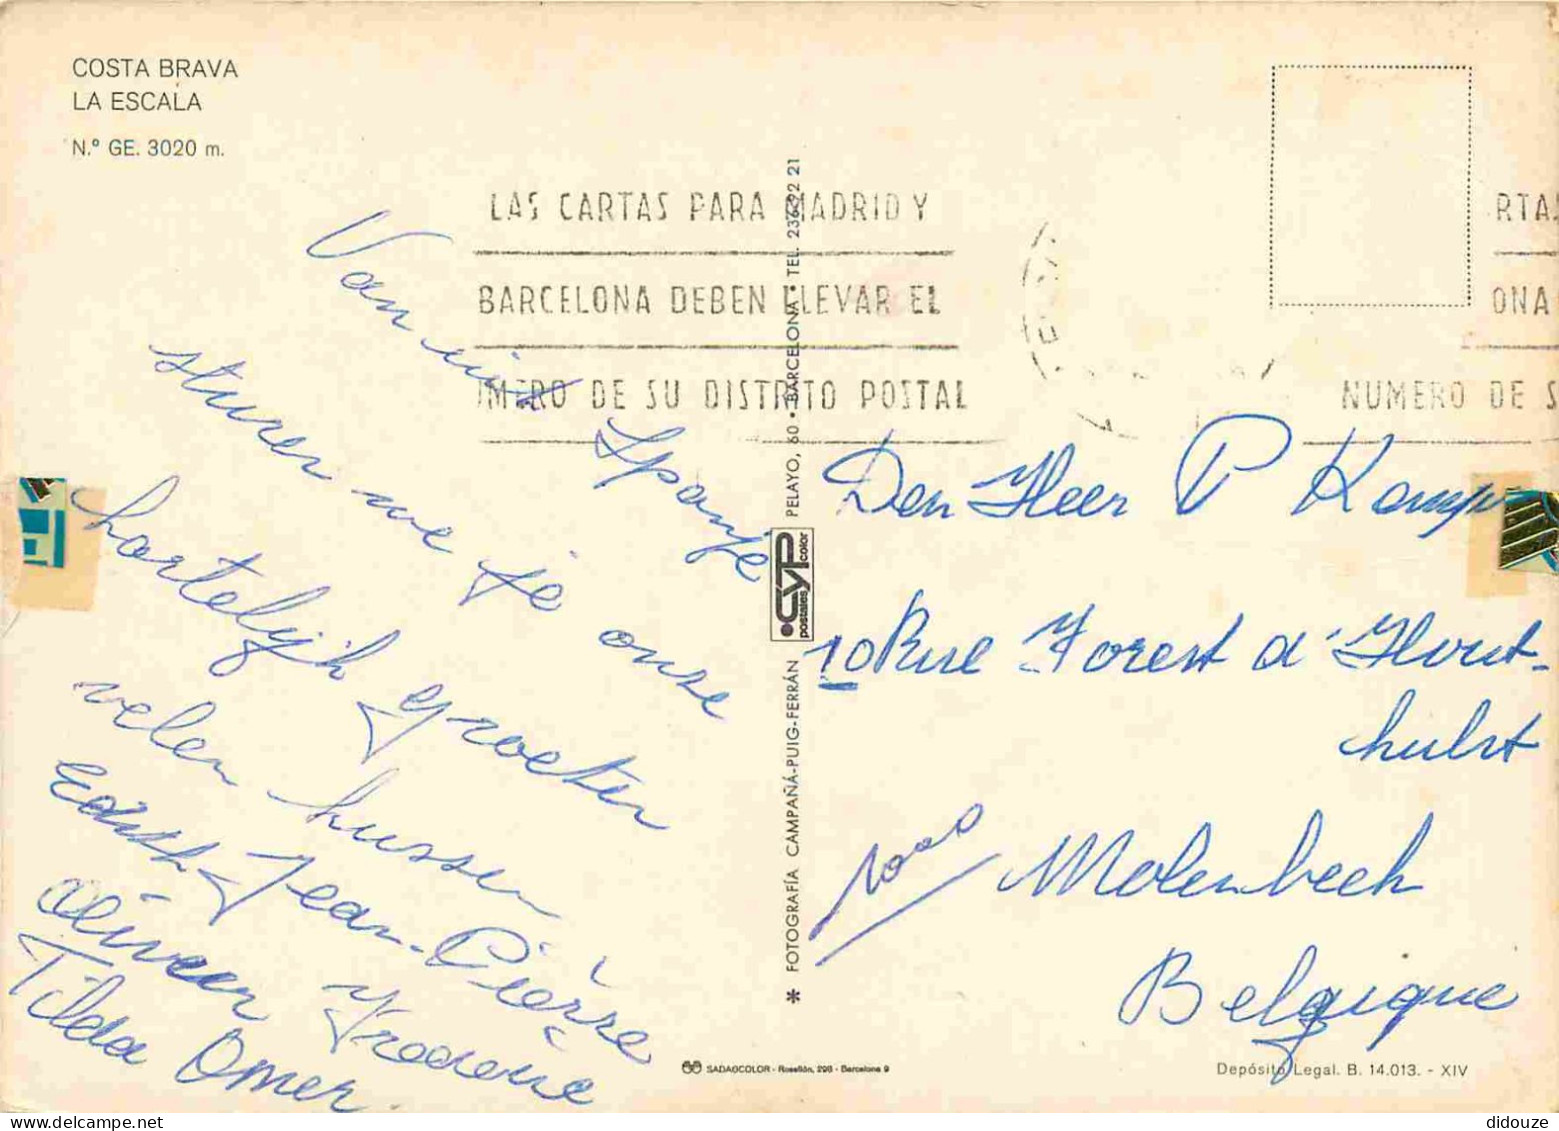 COSTA BRAVA
LA ESCALA
N.º GE. 3020 m.
LAS CARTAS PARA MADRID Y
BARCELONA DEBEN LLEVAR EL
MERO DE SU DISTRITO POSTAL
RTA
ONA
NUMERO DE S
Van uit Spanje
sturen we je onze
hartelijk groeten
velen kussen
Edith Jean-Pierre
Oliveer Frederic
Tilda Omer.
✻ FOTOGRAFÍA CAMPAÑÁ-PUIG-FERRÁN
postales CYP color
PELAYO, 60 • BARCELONA • TEL. 236 92 21
Den Heer P Kemp
10 Rue Forest d'Hout-
hulst
1000 Molenbeek
Belgique
SADAGCOLOR - Rosellón, 298 - Barcelona 9
Depósito Legal. B. 14.013. - XIV
didouze